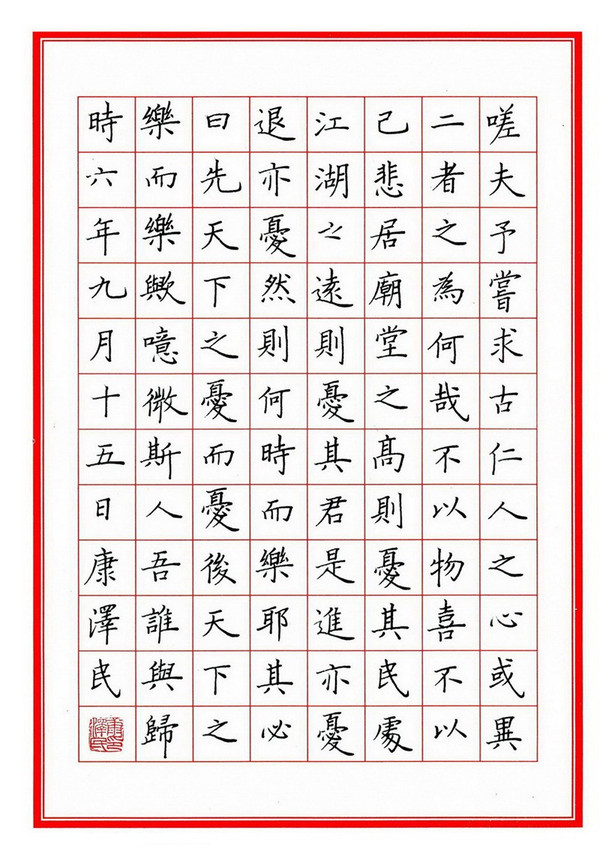 嗟夫予嘗求古仁人之心或異
二者之為何哉不以物喜不以
己悲居廟堂之高則憂其民處
江湖之遠則憂其君是進亦憂
退亦憂然則何時而樂耶其必
曰先天下之憂而憂後天下之
樂而樂歟噫微斯人吾誰與歸
時六年九月十五日康澤民